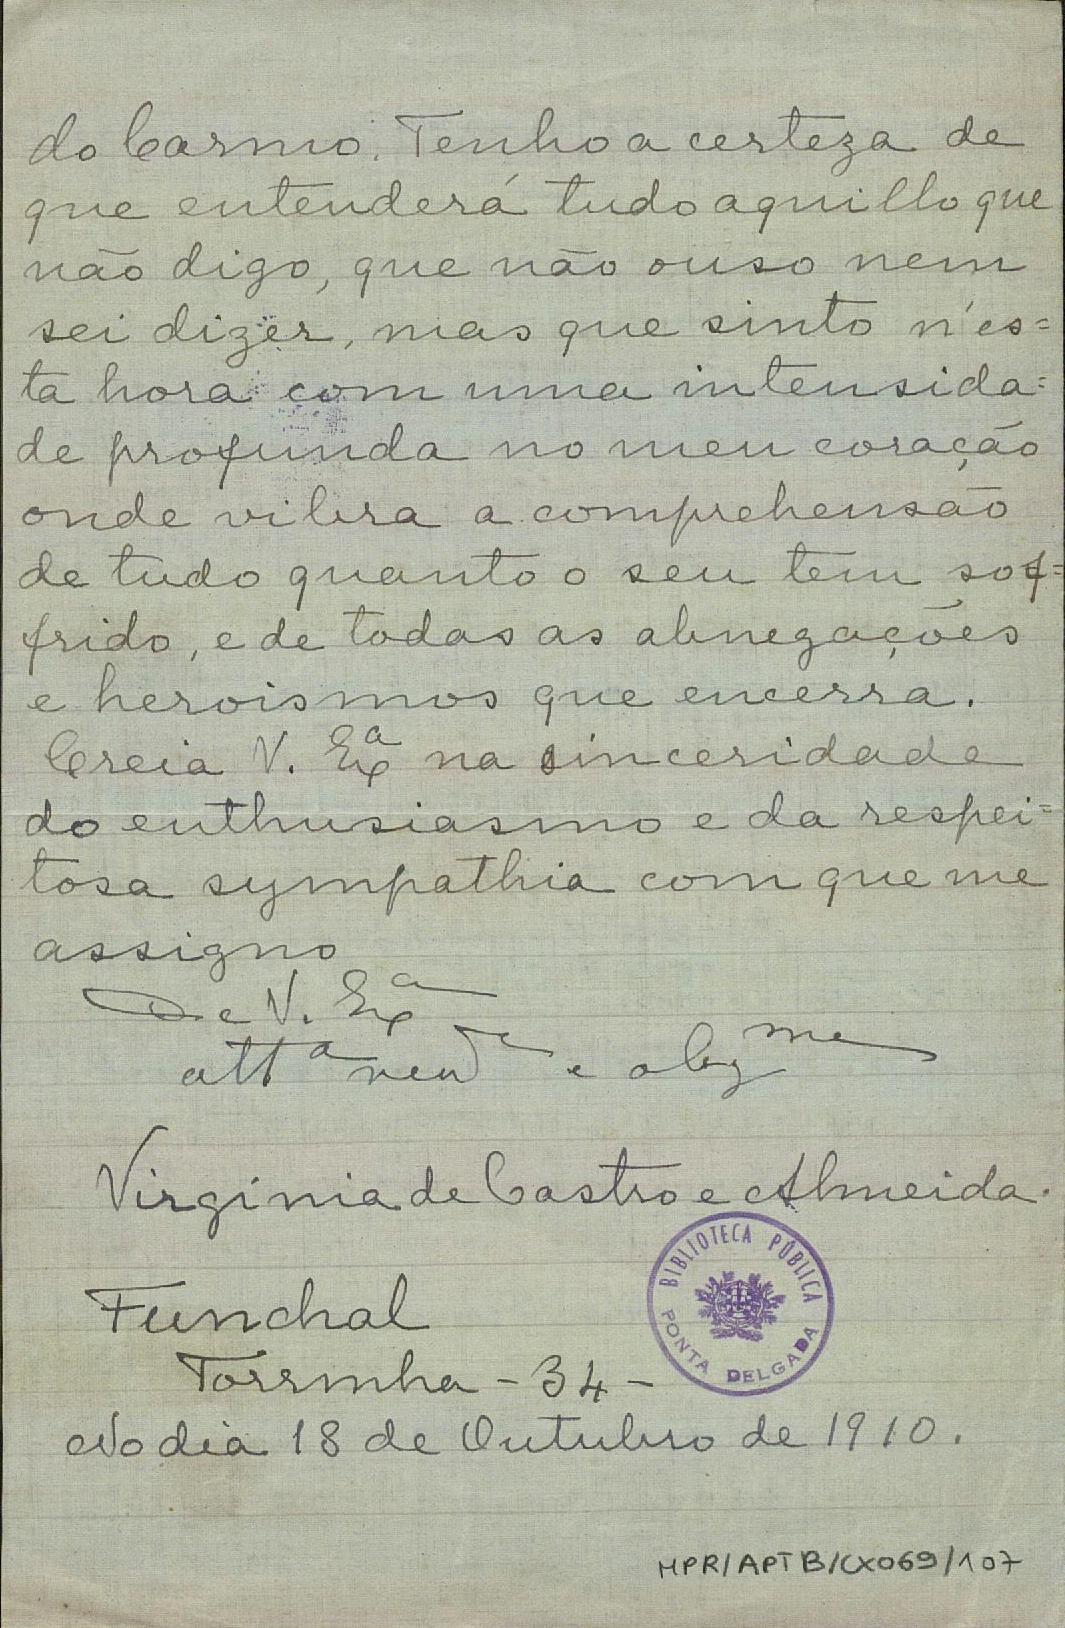 do Carmo. Tenho a certeza de
que entenderá tudo aquillo que
não digo, que não ouso nem
sei dizer, mas que sinto n'es=
ta hora com uma intensida=
de profunda no meu coração
onde vibra a comprehensão
de tudo quanto o seu tem sof=
frido, e de todas as abnegações
e heroismos que encerra.
Creia V. Exª na sinceridade
do enthusiasmo e da respei=
tosa sympathia com que me
assigno
De V. Exª
attª venᵈᵉ e obgᵐᵉ
Virgínia de Castro e Almeida.
BIBLIOTECA PÚBLICA
PONTA DELGADA
Funchal
Torrinha - 34 -
No dia 18 de Outubro de 1910.
MPR/APTB/CX069/107